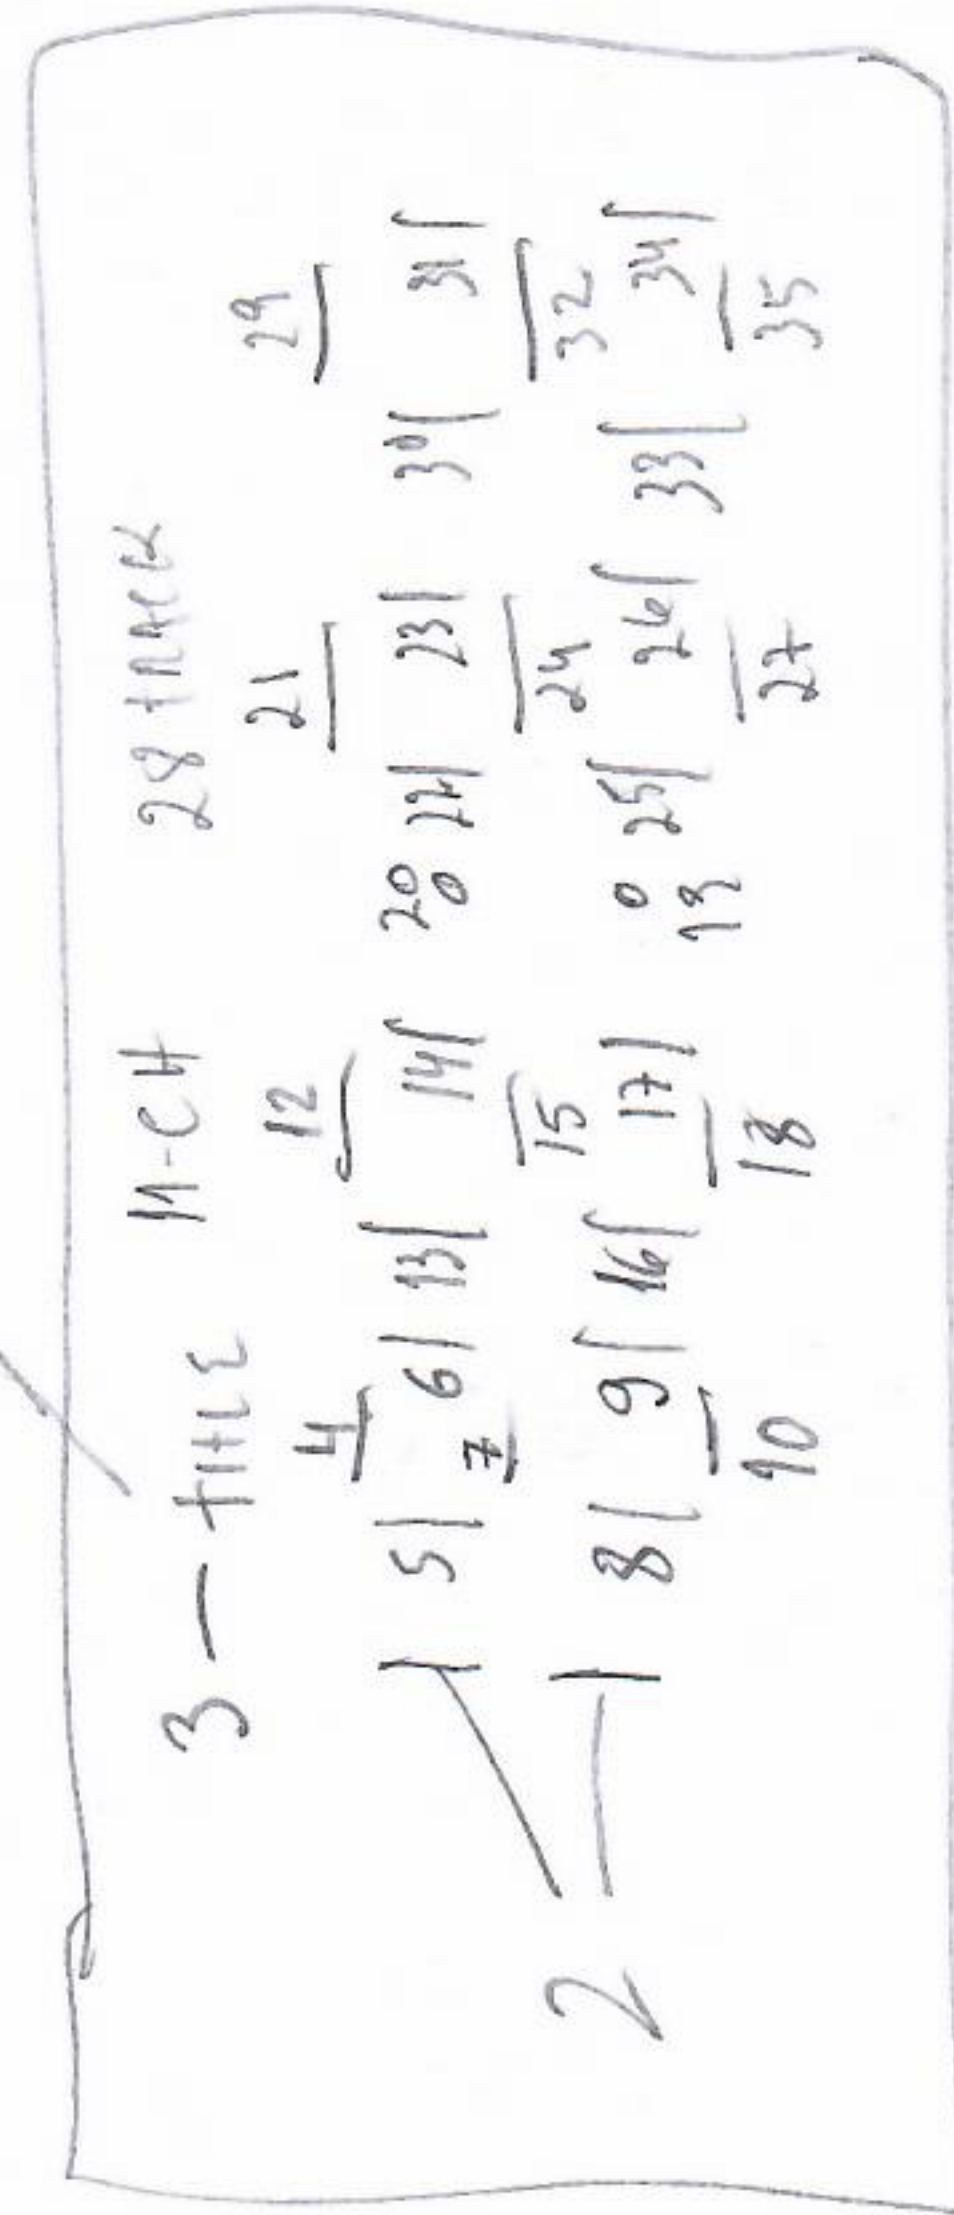 3 — TITLE 11-CH 28 TRACK
4 12 21 29
5 6 13 14 20 22 23 30 31
7 15 24 32
2
8 9 16 17 25 26 33 34
19
10 18 27 35